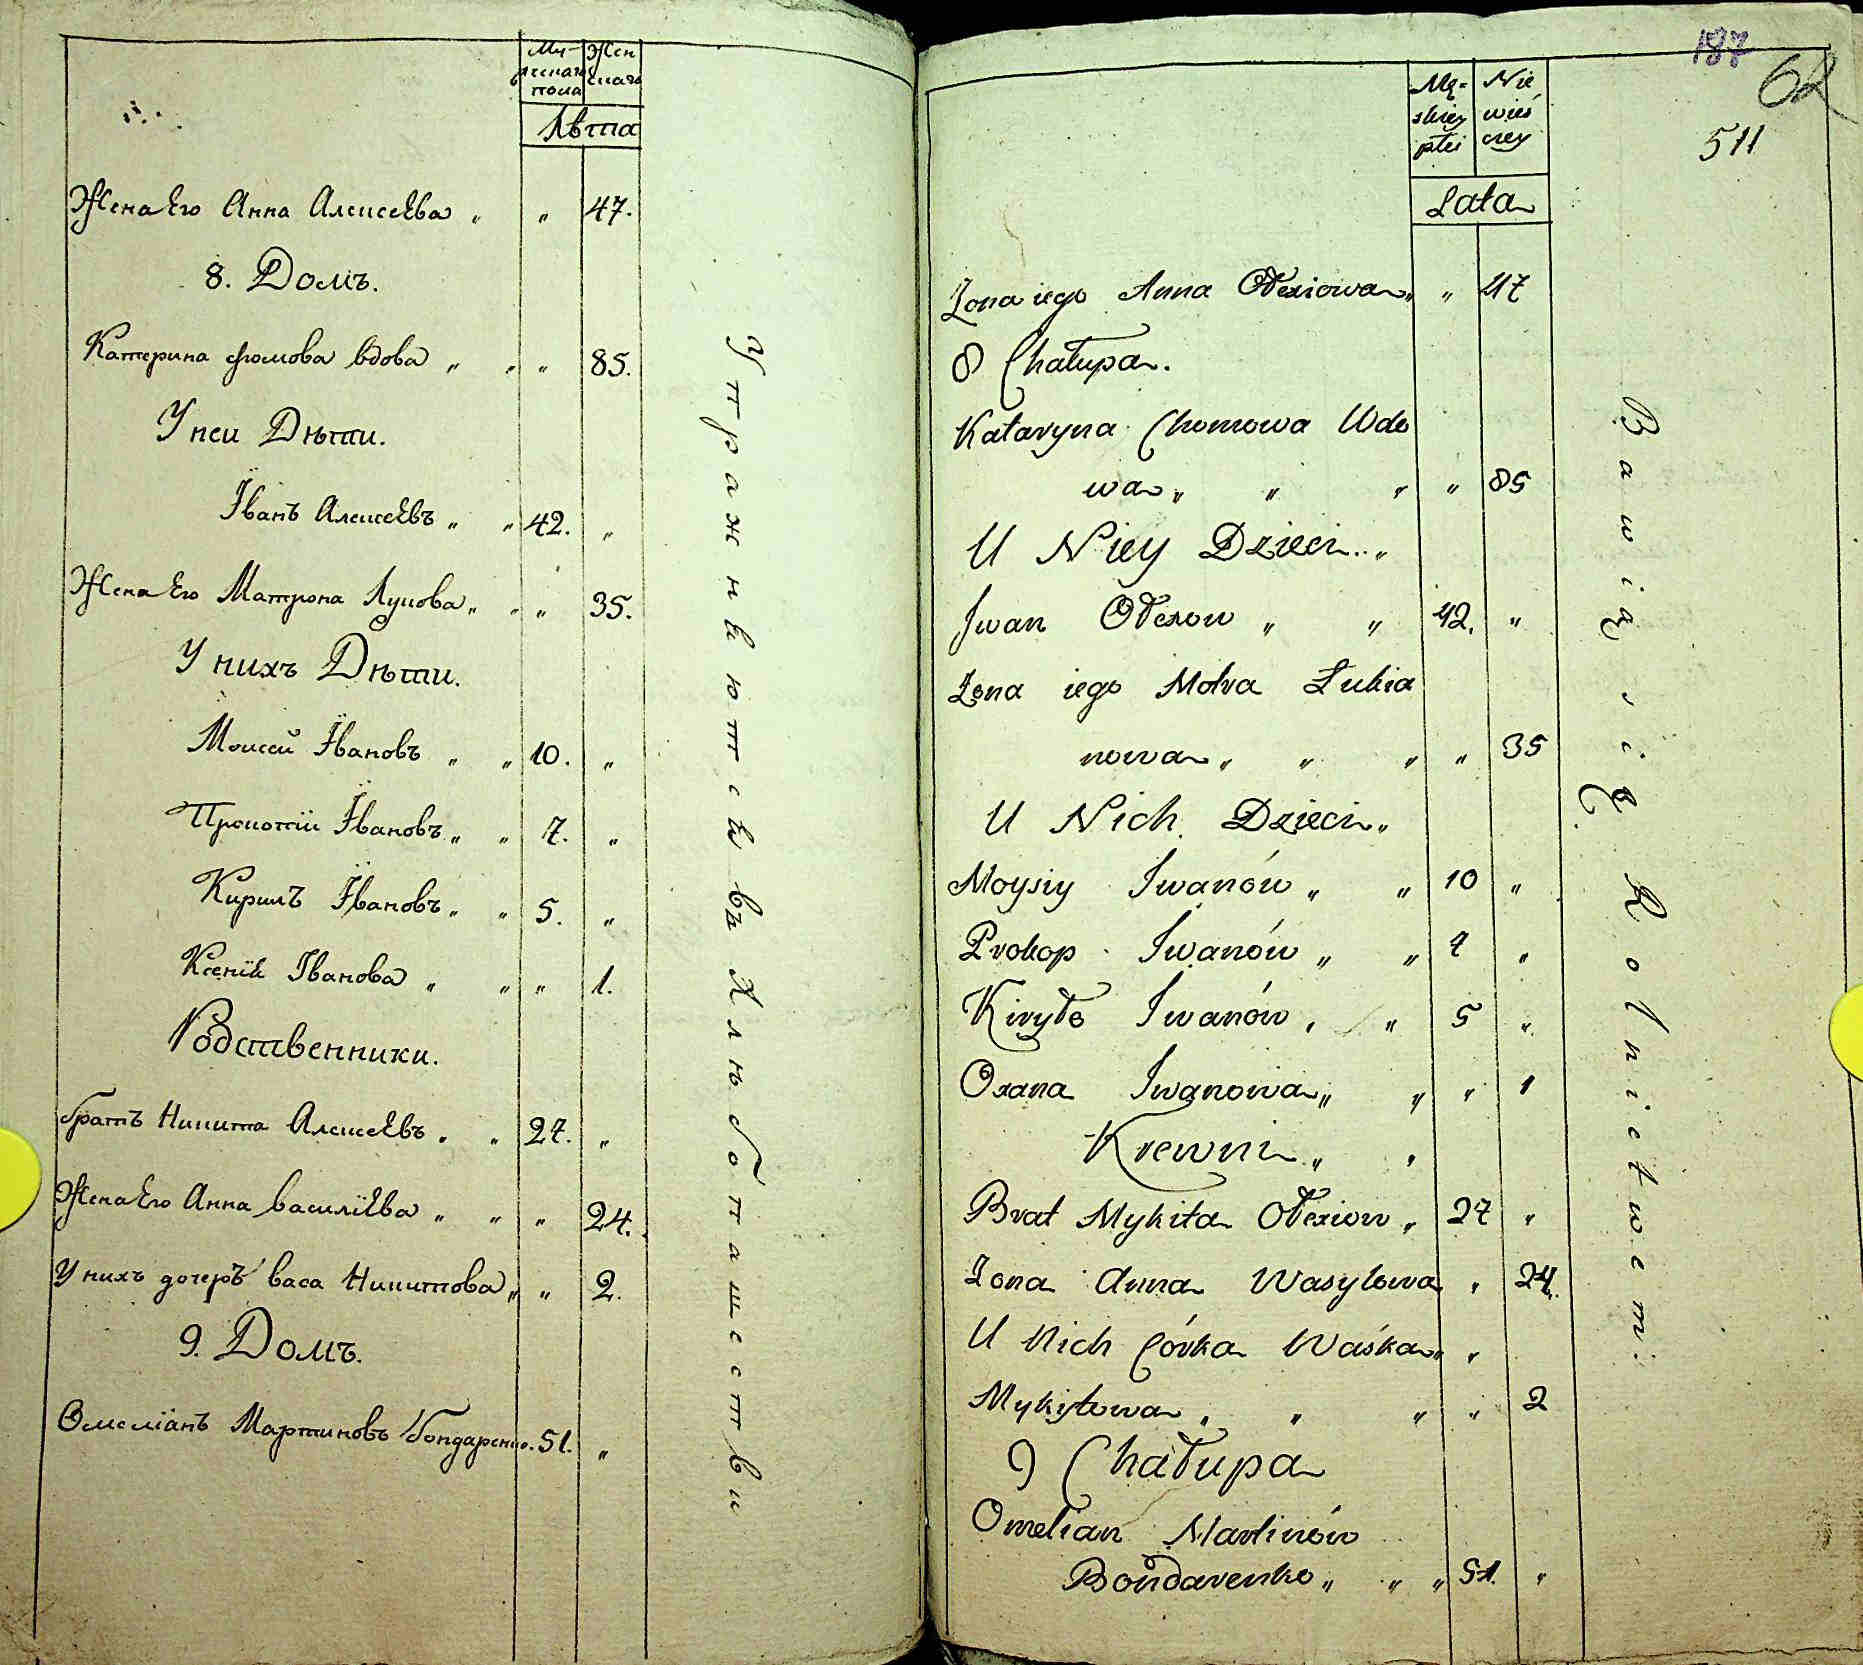 Му-
жскаго
пола
Жен
скаго
Лѣта
Жена Его Анна Алексеева „ „ 47.
8. Домъ.
Катерина фомова вдова „ „ „ 85.
У неи Дѣти.
Іванъ Алексеевъ „ „ 42. „
Жена Его Матрона Луцова „ „ „ 35.
У нихъ Дѣти.
Моисей Івановъ „ „ 10. „
Прокопій Івановъ „ „ 7. „
Кирилъ Івановъ „ „ 5. „
Ксеніѣ Іванова „ „ „ 1.
Родственники.
братъ Никита Алексеевъ „ „ 27. „
Жена Его Анна василіева „ „ „ 24.
У нихъ дочеръ васа Никитова „ „ 2.
9. Домъ.
Омеліанъ Мартиновъ Бондаренко. 51. „
Упражнѣютсѣ въ Хлѣбопашестви
187
62
511
Mę-
skiey
płci
Nie
wieś
czey
Lata
Żona iego Anna Ołexiowa „ „ 47
8 Chałupa.
Kataryna Chomowa Wdo
wa „ „ „ „ 85
U Niey Dzieci „
Iwan Ołexow „ „ 42. „
Żona iego Motra Łukia
nowa „ „ „ „ 35
U Nich Dzieci „
Moysiy Iwanów „ „ 10 „
Prokop Iwanów „ „ 7 „
Kiryło Iwanów „ „ 5 „
Oxana Iwanowa „ „ „ 1
Krewni „ „
Brat Mykita Ołexiow „ 27 „
Żona Anna Wasylowa „ 24.
U Nich Córka Waśka „ „
Mykitowa „ „ „ „ 2
9 Chałupa
Omelian Martinów
Bondarenko „ „ „ 51. „
Bawią się Rolnictwem.